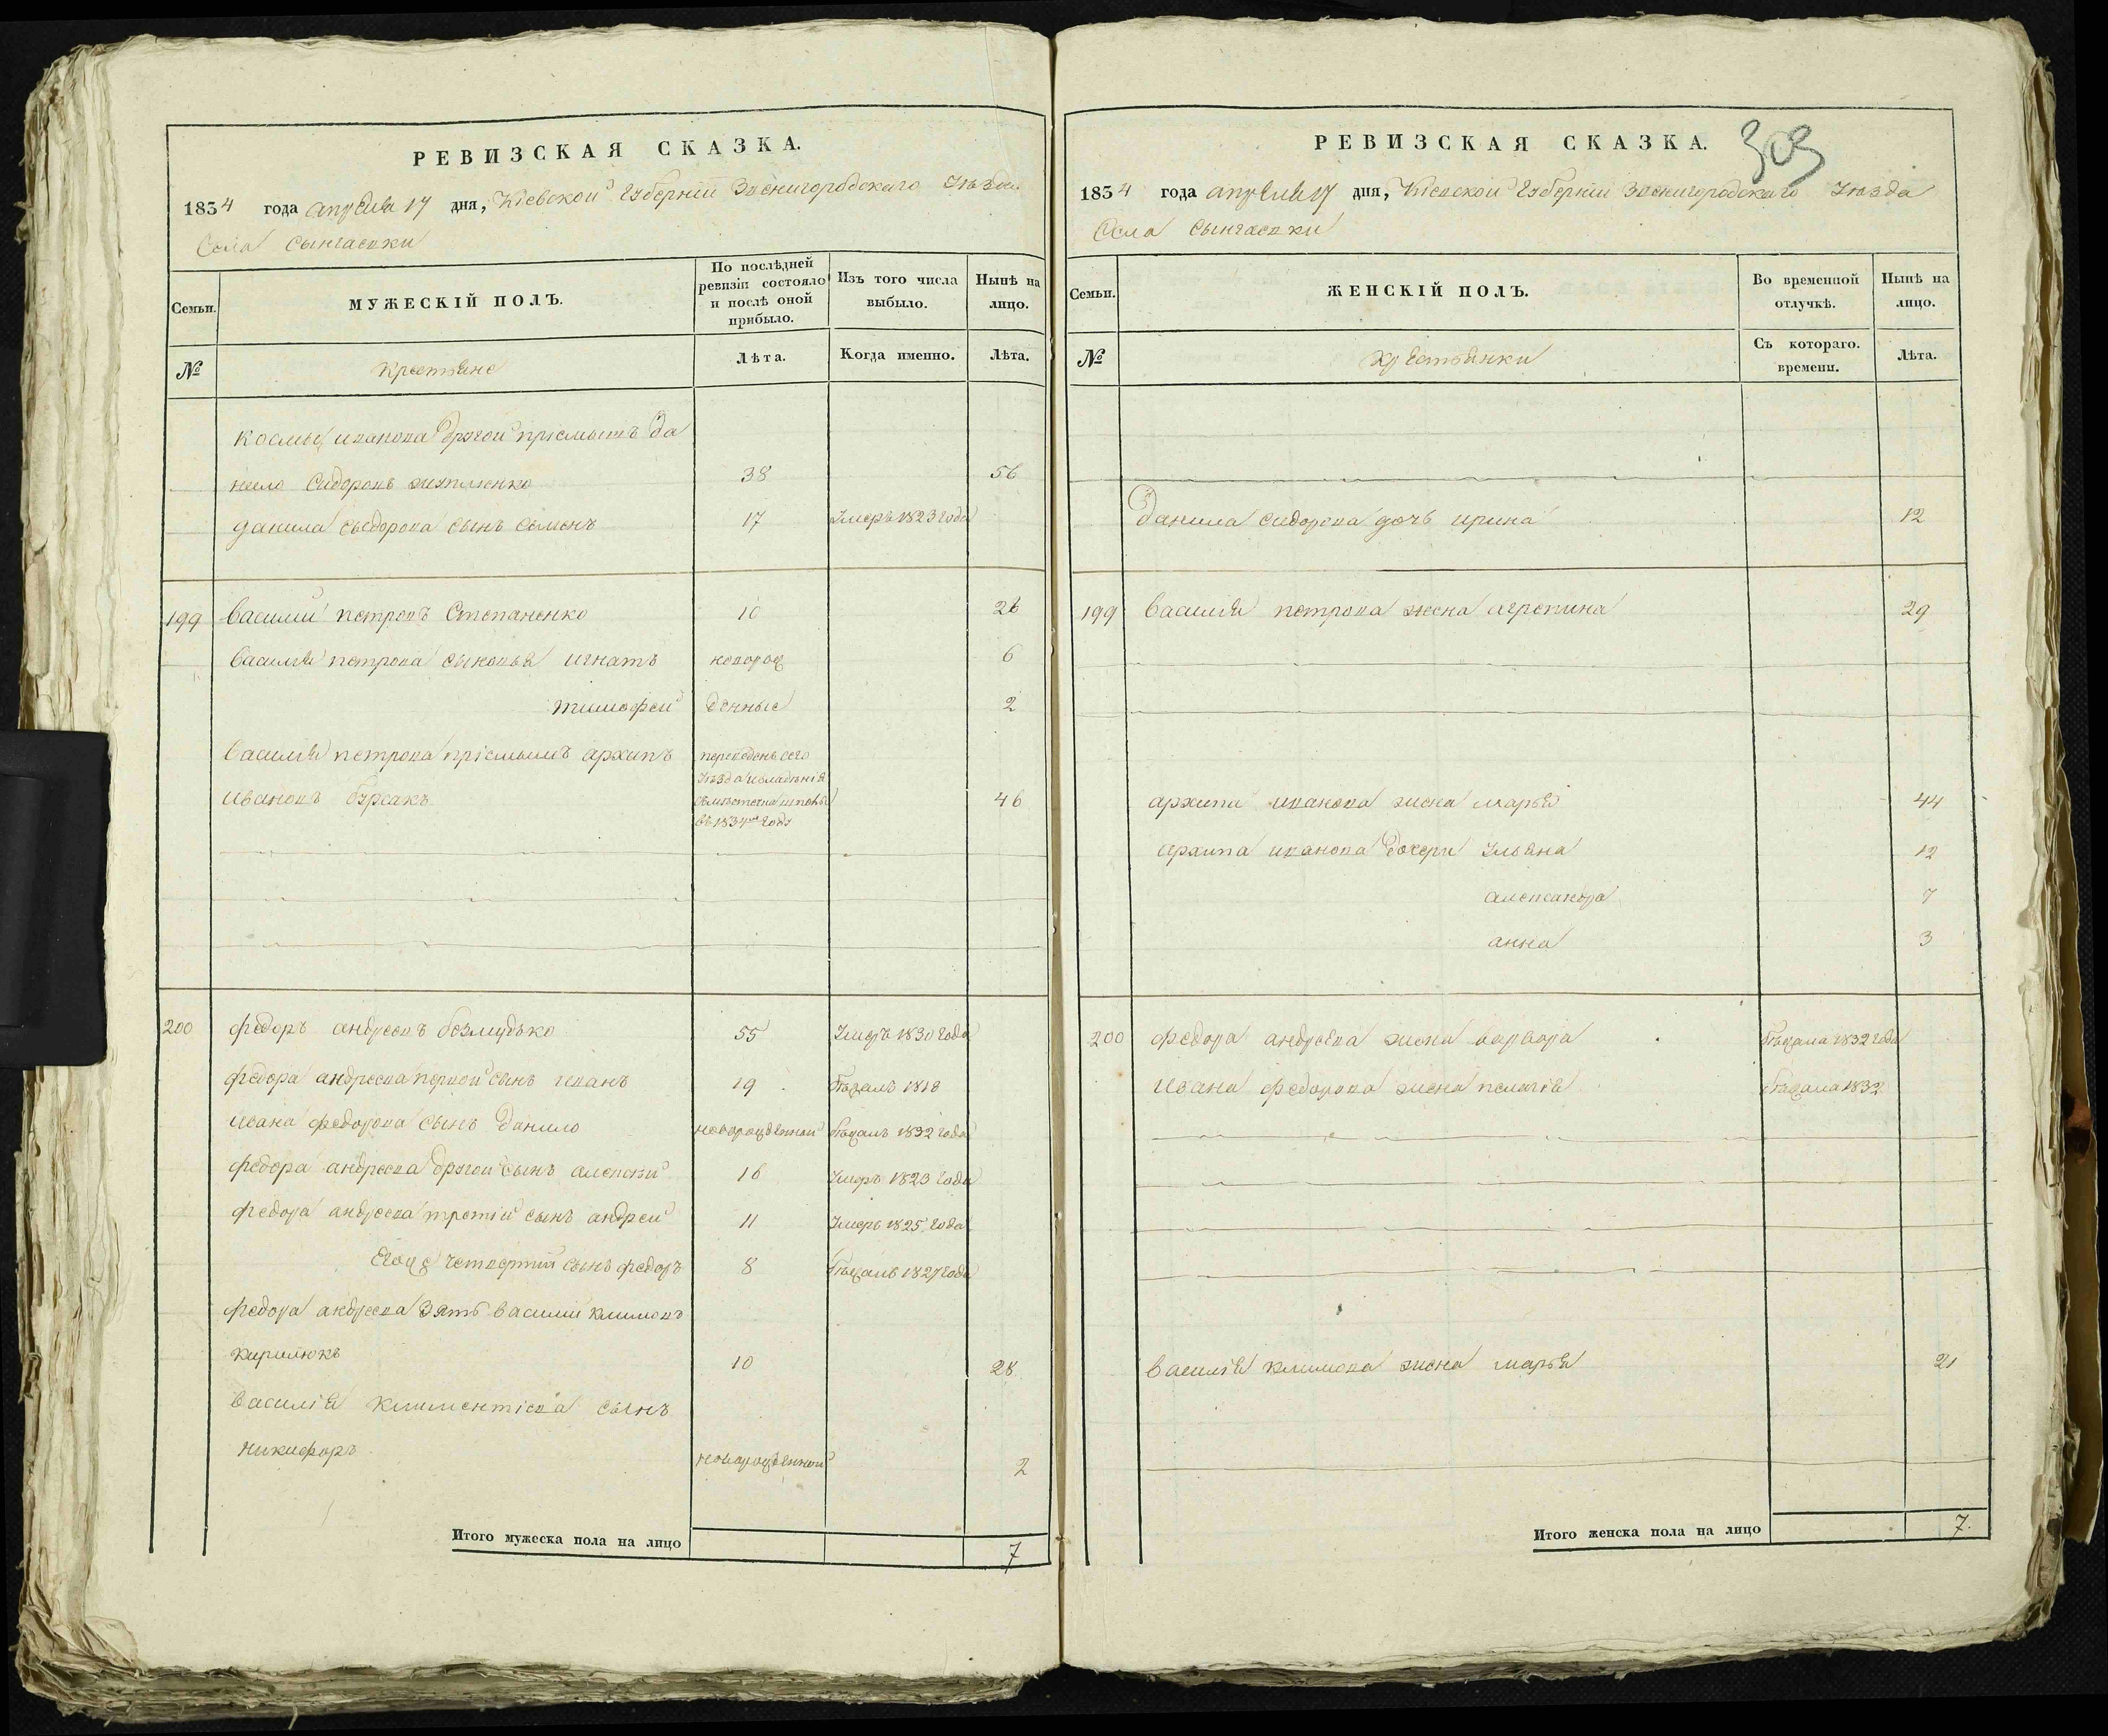 РЕВИЗСКАЯ СКАЗКА.
1834 года апреля 17 дня, Кіевской Губерніи Звенигородского Уезда
Села Сынчасвки
Семьи.
МУЖЕСКІЙ ПОЛЪ.
По послѣдней ревизіи состояло и послѣ оной прибыло.
Изъ того числа выбыло.
Нынѣ на лицо.
№
крестьяне
Лѣта.
Когда именно.
Лѣта.
космы иванова другой пріемышъ да
нело Сидоровъ 38 56
данила сыдорова сынъ семенъ 17 Умеръ 1823 года
199 Василий петровъ Степаненко 10 26
Василія петрова сыновья игнатъ новорож 6
тимофей денные 2
Василія петрова пріемышъ архипъ переведенъ сего
Уезда
ивановъ бурсакъ 46
въ 1834 году
200 федоръ андреевъ 55 Умеръ 1830 года
федора андреева первой сынъ иванъ 19 бѣжалъ 1818
ивана федорова сынъ данило новорожденной бѣжалъ 1832 года
федора андреева другой сынъ алексей 16 Умеръ 1823 года
федора андреева третій сынъ андрей 11 Умеръ 1825 года
Егоже четвертий сынъ федоръ 8 бѣжалъ 1827 года
федора андреева Зять василий климовъ
кирилюкъ 10 28
василія климентіева сынъ
никифоръ новорожденной 2
Итого мужеска пола на лицо 7
РЕВИЗСКАЯ СКАЗКА. 303
1834 года апреля 17 дня, Кіевской Губерніи Звенигородского Уезда
Села Сынчасвки
Семьи.
ЖЕНСКІЙ ПОЛЪ.
Во временной отлучкѣ.
Нынѣ на лицо.
№
крестьянки
Съ котораго. времени.
Лѣта.
Данила сидорова дочь ирина 12
199 Василія петрова жена агрепина 29
архипа иванова жена марья 44
архипа иванова дочери Ульяна 12
александра 7
анна 3
200 федора андреева жена варвара бѣжала 1832 года
ивана федорова жена пелагія бѣжала 1832
василія климова жена марья 21
Итого женска пола на лицо 7.